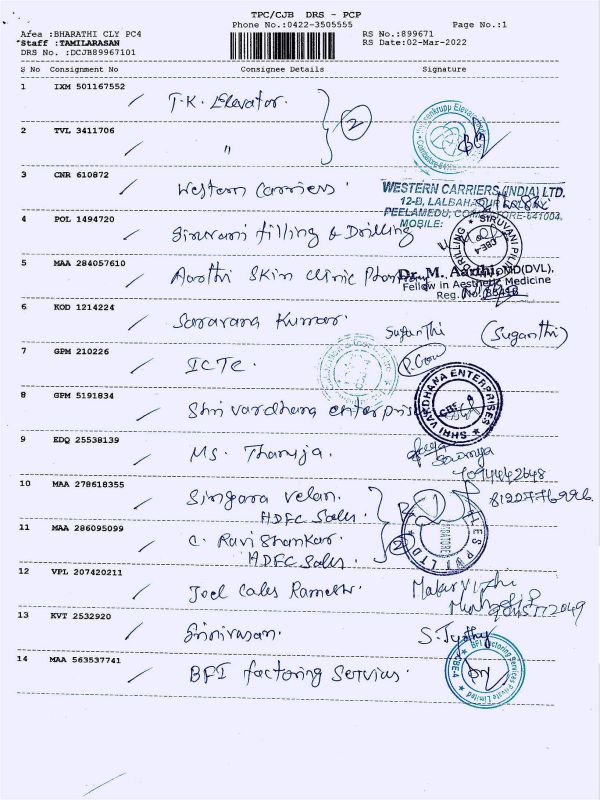 TPC/CJB DRS - PCP
Phone No.:0422-3505555 Page No.:1
Area :BHARATHI CLY PC4 RS No.:899671
Staff :TAMILARASAN RS Date:02-Mar-2022
DRS No. :DCJB89967101
S No Consignment No Consignee Details Signature
1 IXM 501167552 T.K. Elevator. 2
2 TVL 3411706 "
3 CNR 610872 Western Carriers.
WESTERN CARRIERS (INDIA) LTD.
12-B, LALBAHADUR
PEELAMEDU, COIMBATORE-641004.
MOBILE:
4 POL 1494720 Siruvani filling & Drilling
5 MAA 284057610 Aarthi Skin Clinic
Dr. M. Aarthi, MD(DVL),
Fellow in Aesthetic Medicine
Reg. No.
6 KOD 1214224 Saravana Kumar. Suganthi (Suganthi)
7 GPM 210226 ICTC.
8 GPM 5191834 Shri vardhana enterprises
SHRI VARDHANA ENTERPRISES
9 EDQ 25538139 Ms. Thanuja.
10 MAA 278618355 Singara velan.
HDFC Sales.
11 MAA 286095099 C. Ravi Shankar. 2
HDFC Sales.
12 VPL 207420211 Joel
13 KVT 2532920 Srinivasan. S. Jyothy
14 MAA 563537741 BFI factoring Services.
BFI Factoring Services Private Limited